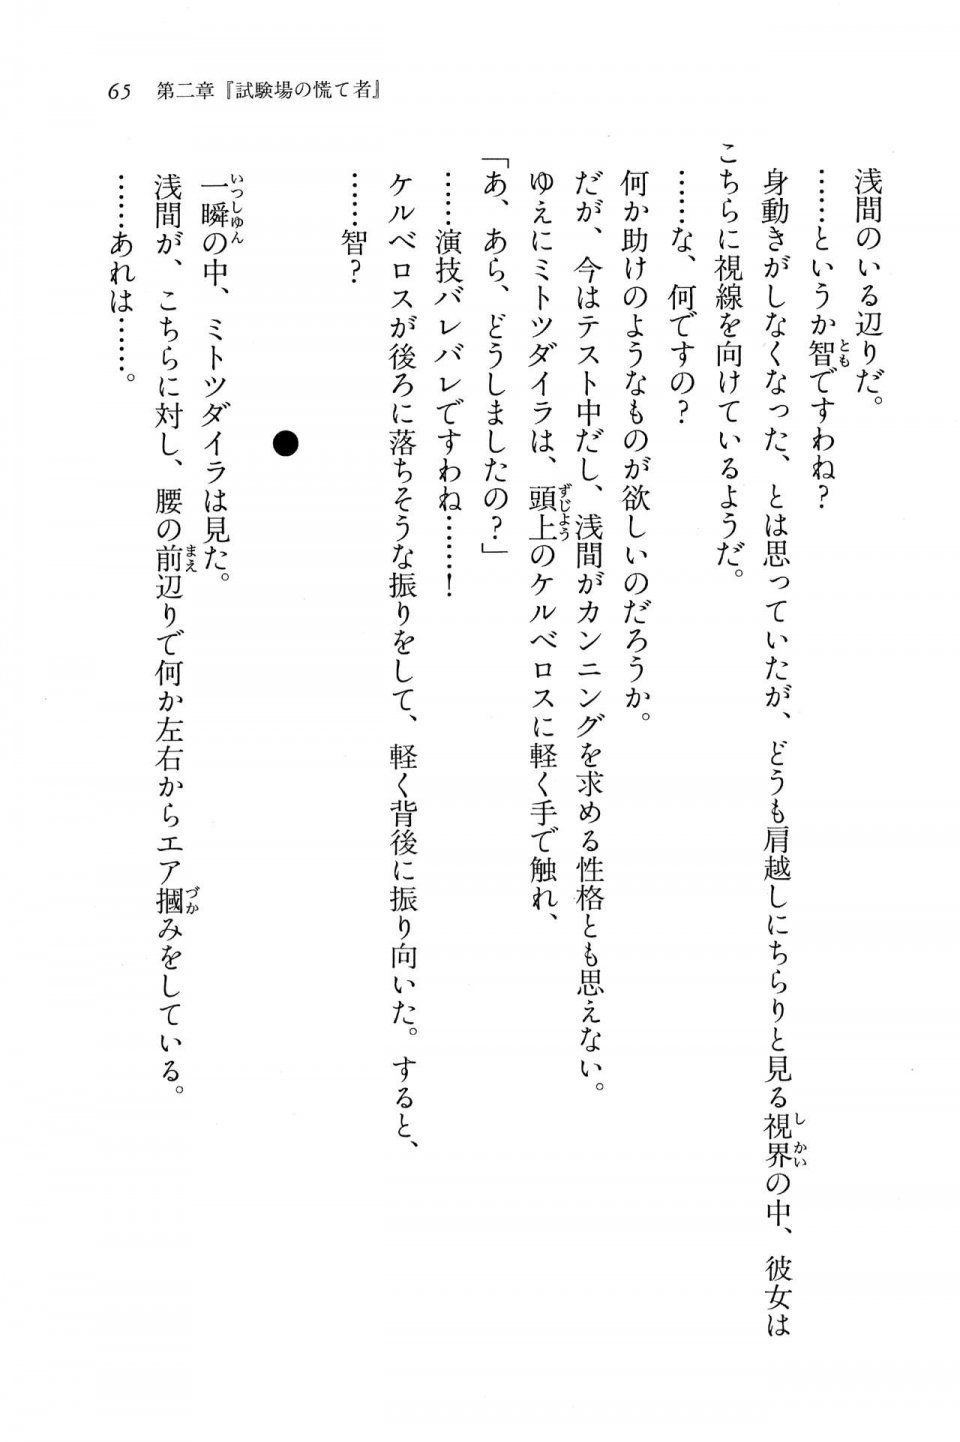 65 第二章『試験場の慌て者』
浅間のいる辺りだ。
……というか智ですわね？
身動きがしなくなった、とは思っていたが、どうも肩越しにちらりと見る視界の中、彼女は
こちらに視線を向けているようだ。
……な、何ですの？
何か助けのようなものが欲しいのだろうか。
だが、今はテスト中だし、浅間がカンニングを求める性格とも思えない。
ゆえにミトツダイラは、頭上のケルベロスに軽く手で触れ、
「あ、あら、どうしましたの？」
……演技バレバレですわね……！
ケルベロスが後ろに落ちそうな振りをして、軽く背後に振り向いた。すると、
……智？
●
一瞬の中、ミトツダイラは見た。
浅間が、こちらに対し、腰の前辺りで何か左右からエア摑みをしている。
……あれは……。